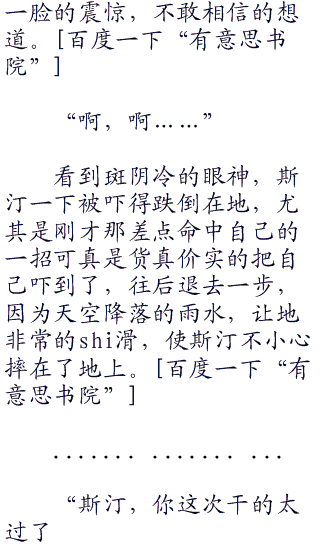 一脸的震惊，不敢相信的想
道。[百度一下“有意思书
院”]
“啊，啊……”
看到斑阴冷的眼神，斯
汀一下被吓得跌倒在地，尤
其是刚才那差点命中自己的
一招可真是货真价实的把自
己吓到了，往后退去一步，
因为天空降落的雨水，让地
非常的shi滑，使斯汀不小心
摔在了地上。[百度一下“有
意思书院”]
....... ....... ...
“斯汀，你这次干的太
过了